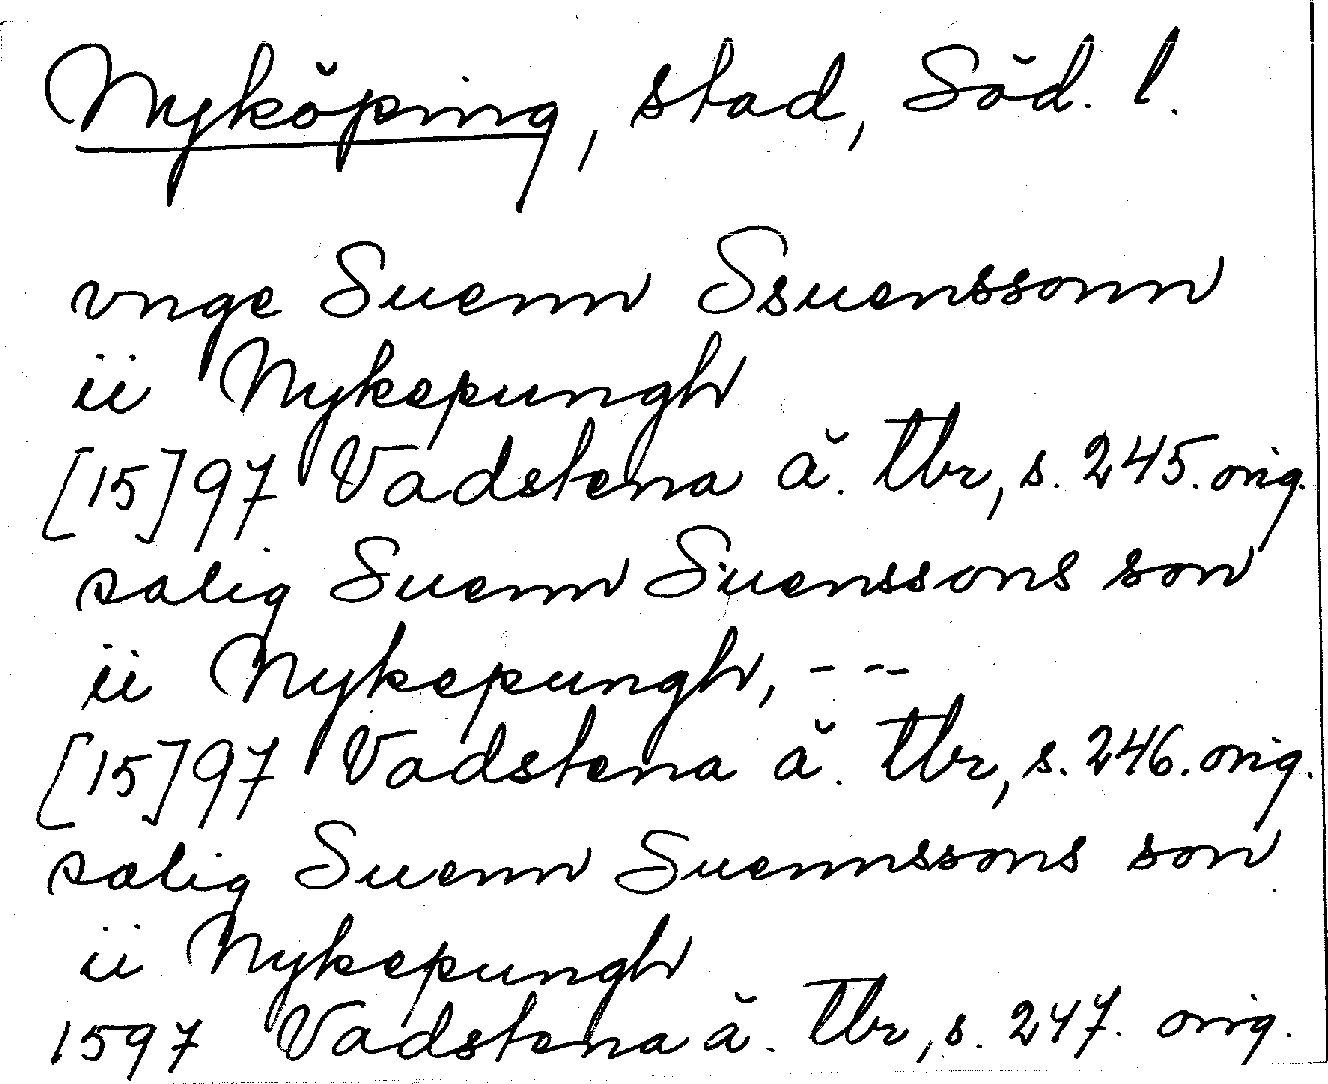 Nyköping, stad, Söd. l.
vnge Suenn Ssuenssonn
ii Nykepungh
[15]97 Vadstena ä. tbr, s. 245. orig.
salig Suenn Suenssons son
ii Nykepungh, - - -
[15]97 Vadstena ä. tbr, s. 246. orig.
sælig Suenn Suennssons son
ii Nykepungh
1597 Vadstena ä. tbr, s. 247. orig.